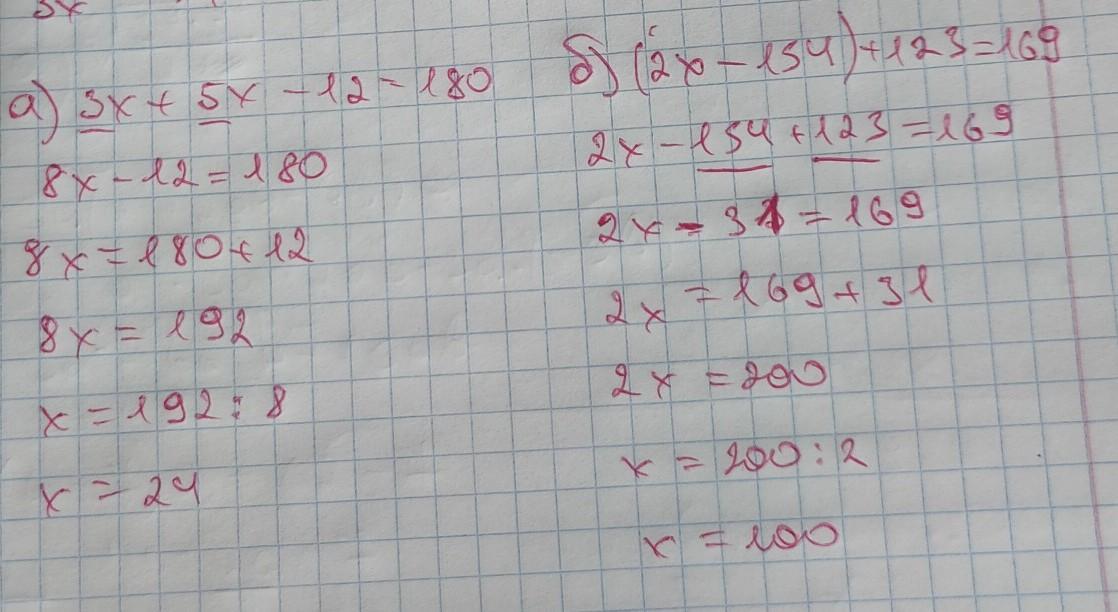 5x
а) 3x + 5x - 12 = 180
8x - 12 = 180
8x = 180 + 12
8x = 192
x = 192 : 8
x = 24
б) (2x - 154) + 123 = 169
2x - 154 + 123 = 169
2x - 31 = 169
2x = 169 + 31
2x = 200
x = 200 : 2
x = 100